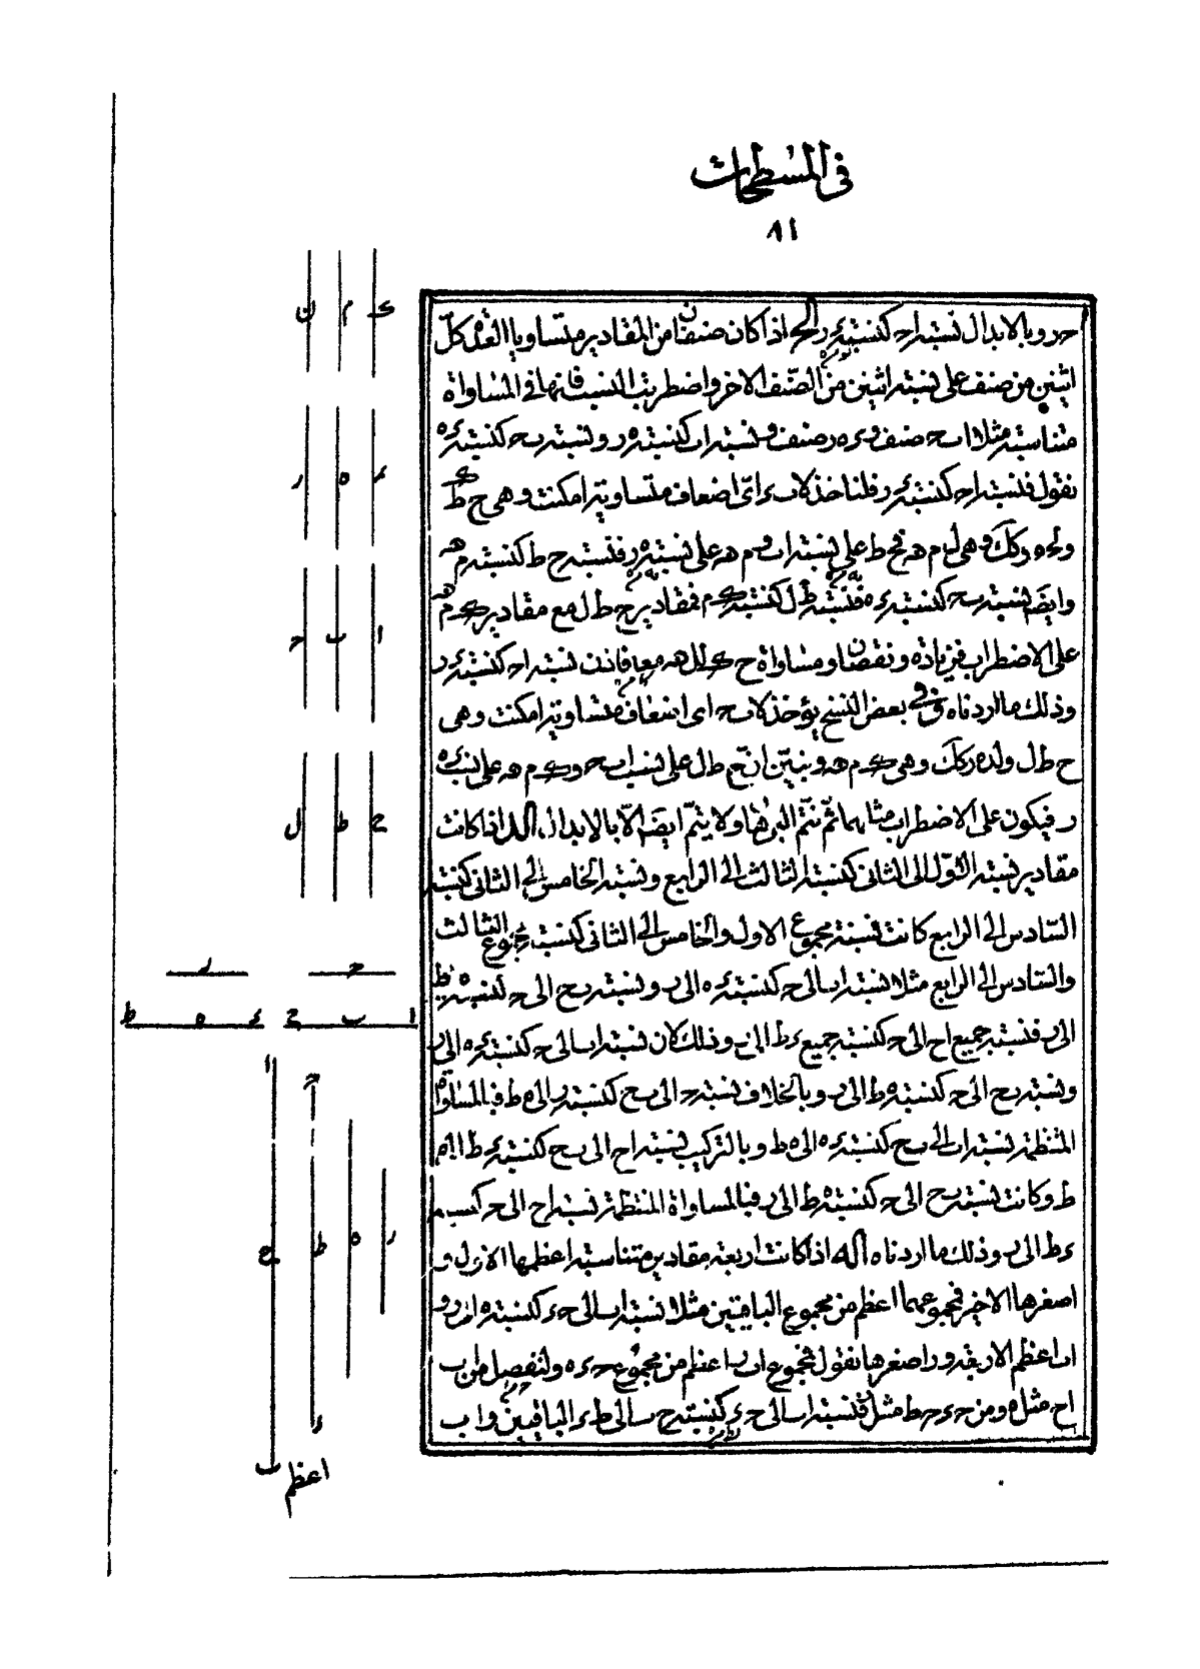 في المسطحات
٨١
ح ر وبالابدال نسبة اح كنسبة ء ر اذا كان صنفان من المقادير متساويا العدة كل
اثنين من صنف على نسبة اثنين من الصنف الاخر واضطربت النسب فانها في المساواة
متناسبة مثلا ا ب ح صنف و ء ه ر صنف ونسبة ا ب كنسبة ه ر ونسبة ب ح كنسبة ء ه
نقول فنسبة ا ح كنسبة ء ر فلناخذ لا ب ء اى اضعاف متساوية امكنت وهي ح ط ك
كذلك وهي ل م ن ح ط على نسبة ا ب و م ن على نسبة ه ر فنسبة ح ط كنسبة م ن
وايضا نسبة ب ح كنسبة ء ه فنسبة ط ل كنسبة ك م فمقادير ح ط ل مع مقادير ك م ن
على الاضطراب فزيادة ونقصان ومساواة ح ك ل ن معا فاذن نسبة ا ح كنسبة ء ر
وذلك ما اردناه وفي بعض النسخ يؤخذ لا ب ح اى اضعاف متساوية امكنت وهي
ح ط ل ولء ه ر كذلك وهي ك م ن ونبين ان ح ط ل على نسب ا ب ح و ك م ن على نسب ء ه
ر فيكون على الاضطراب مثلهما ثم نتم البرهان ولا يتم ايضا الا بالابدال اذا كانت
مقادير نسبة الاول الى الثاني كنسبة الثالث الى الرابع ونسبة الخامس الى الثاني كنسبة
السادس الى الرابع كانت نسبة مجموع الاول والخامس الى الثاني كنسبة مجموع الثالث
والسادس الى الرابع مثلا نسبة ا ب الى ح كنسبة ء ه الى ر ونسبة ب ح الى ح كنسبة ه ط
الى ر فنسبة جميع ا ح الى ح كنسبة جميع ء ط الى ر وذلك لان نسبة ا ب الى ح كنسبة ء ه الى ر
ونسبة ب ح الى ح كنسبة ه ط الى ر وبالخلاف نسبة ح الى ب ح كنسبة ر الى ه ط فبالمساواة
المنتظمة نسبة ا ب الى ب ح كنسبة ء ه الى ه ط وبالتركيب نسبة ا ح الى ب ح كنسبة ء ط الى ه
ط وكانت نسبة ب ح الى ح كنسبة ه ط الى ر فبالمساواة المنتظمة نسبة ا ح الى ح كنسبة
ء ط الى ر وذلك ما اردناه اذا كانت اربعة مقادير متناسبة اعظمها الاول و
اصغرها الاخير فمجموعهما اعظم من مجموع الباقيين مثلا نسبة ا ب الى ح ء كنسبة ه الى ر و
ا ب اعظم الاربعة و ر اصغرها نقول فمجموع ا ب ر اعظم من مجموع ح ء ه ولنفصل من ا ب
ا ح مثل ه ومن ح ء ح ط مثل ر فنسبة ا ب الى ح ء كنسبة ح ب الى ط ء الباقيين و ا ب
ك م ن
ء ه ر
ا ب ح
ح ط ل
ح ر
ا ب ح ء ه ط
ا ح
ح ط ه ر
ء
ب اعظم